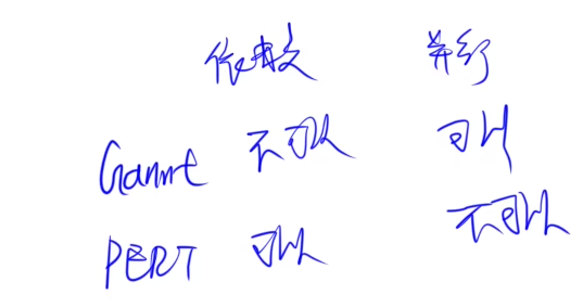 依赖 并行
Gannt 不可以 可以
PERT 可以 不可以